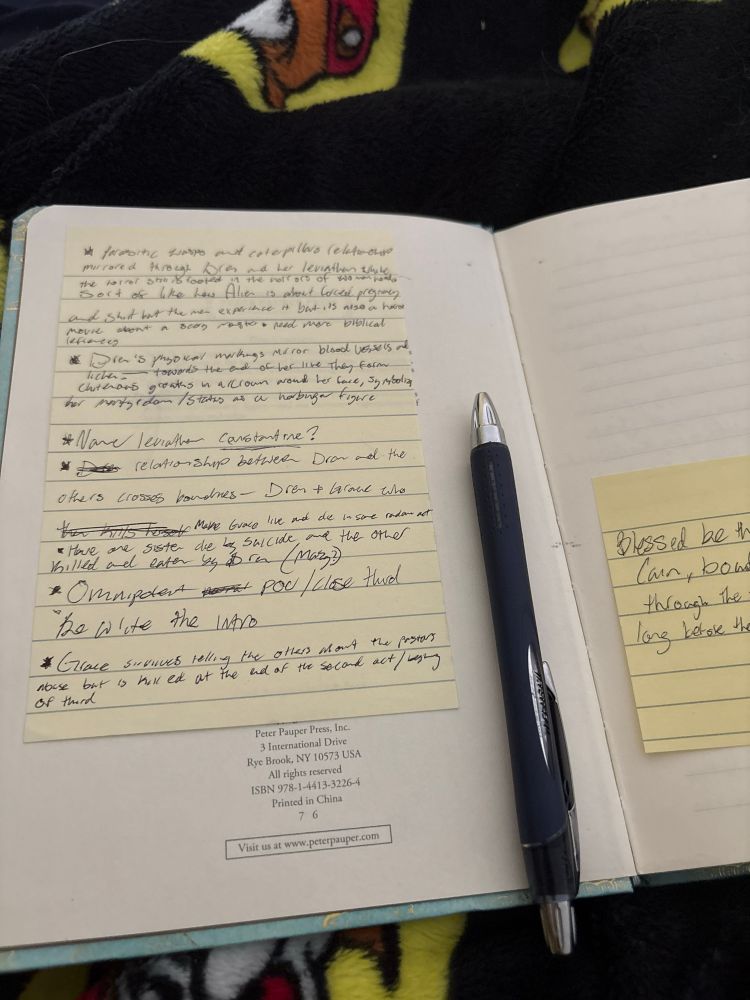 * Parasitic wasps and caterpillars relationship
mirrored through Dren and her leviathan while
the horror still rooted in the horrors of womanhood
Sort of like how Alien is about forced pregnancy
and shit but the men experience it but its also a horror
movie about a scary monster • need more biblical
* Dren's physical markings mirror blood vessels and
lichen — towards the end of her life they form
growths in a crown around her face, symbolizing
her martyrdom / status as a harbinger figure
* Name leviathan Constantine?
* relationship between Dren and the
others crosses boundries — Dren + Grace who
Make Grace live and die in some random act
* Have one sister die by suicide and the other
killed and eaten by Dren (Mary?)
* Omnipotent POV / close third
* Re write the intro
* Grace survives telling the others about the pastors
abuse but is killed at the end of the second act /
of third
Peter Pauper Press, Inc.
3 International Drive
Rye Brook, NY 10573 USA
All rights reserved
ISBN 978-1-4413-3226-4
Printed in China
7 6
Visit us at www.peterpauper.com
Blessed be th
Cain,
through the
long before the